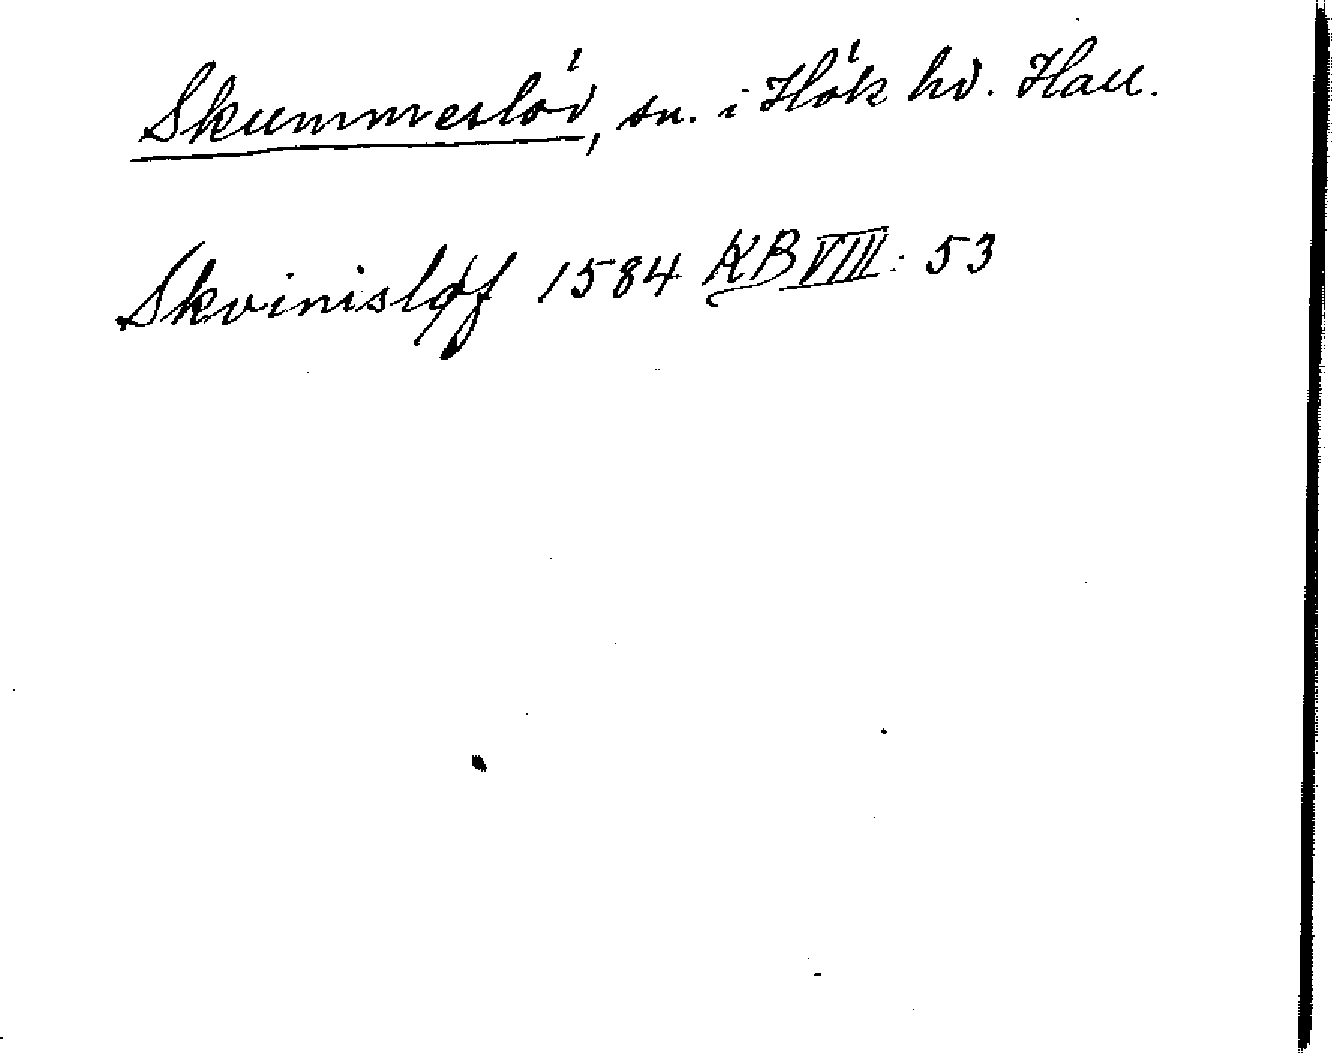 Skummeslöv, sn. i Hök hd. Hall.
Skvinisløf 1584 KB VIII: 53